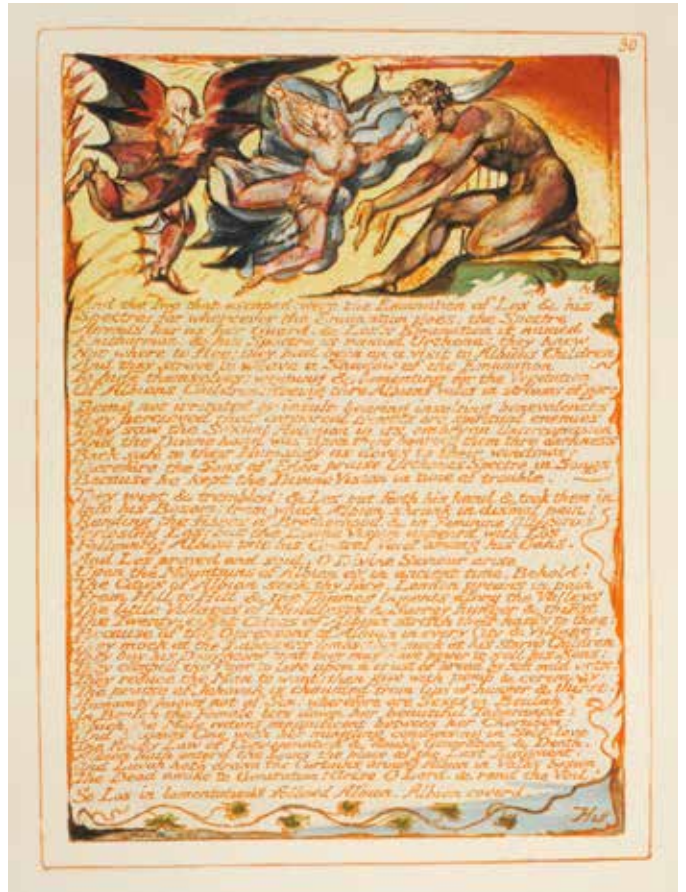 30
And the Two that escaped; were the Emanation of Los & his
Spectre: for whereever the Emanation goes, the Spectre
Attends her as her Guard, & Los's Emanation is named
Enitharmon, & his Spectre is named Urthona: they knew
Not where to flee: they had been on a visit to Albions Children
And they strove to weave a Shadow of the Emanation
To hide themselves: weeping & lamenting for the Vegetation
Of Albions Children; fleeing thro Albions vales in streams of gore
Being not irritated by insult bearing insulting benevolences
They percieved that corporeal friends are spiritual enemies
They saw the Sexual Religion in its embryon Uncircumcision
And the Divine hand was upon them bearing them thro darkness
Back safe to their Humanity as doves to their windows:
Therefore the Sons of Eden praise Urthonas Spectre in Songs
Because he kept the Divine Vision in time of trouble.
They wept & trembled: & Los put forth his hand & took them in
Into his Bosom: from which Albion shrunk in dismal pain;
Rending the fibres of Brotherhood & in Feminine Allegories
Inclosing Los: but the Divine Vision appeard with Los
Following Albion into his Central Void among his Oaks.
And Los prayed and said. O Divine Saviour arise
Upon the Mountains of Albion as in ancient time. Behold!
The Cities of Albion seek thy face, London groans in pain
From Hill to Hill & the Thames laments along the Valleys
The little Villages of Middlesex & Surrey hunger & thirst
The Twenty-eight Cities of Albion stretch their hands to thee:
Because of the Opressors of Albion in every City & Village:
They mock at the Labourers limbs! they mock at his starvd Children.
They buy his Daughters that they may have power to sell his Sons:
They compell the Poor to live upon a crust of bread by soft mild arts:
They reduce the Man to want: then give with pomp & ceremony.
The praise of Jehovah is chaunted from lips of hunger & thirst!
Humanity knows not of Sex: wherefore are Sexes in Beulah?
In Beulah the Female lets down her beautiful Tabernacle;
Which the Male enters magnificent between her Cherubim:
And becomes One with her mingling condensing in Self-love
The Rocky Law of Condemnation & double Generation, & Death.
Albion hath enterd the Loins the place of the Last Judgment:
And Luvah hath drawn the Curtains around Albion in Vala's bosom
The Dead awake to Generation! Arise O Lord, & rend the Veil!
So Los in lamentations followd Albion, Albion coverd,
His